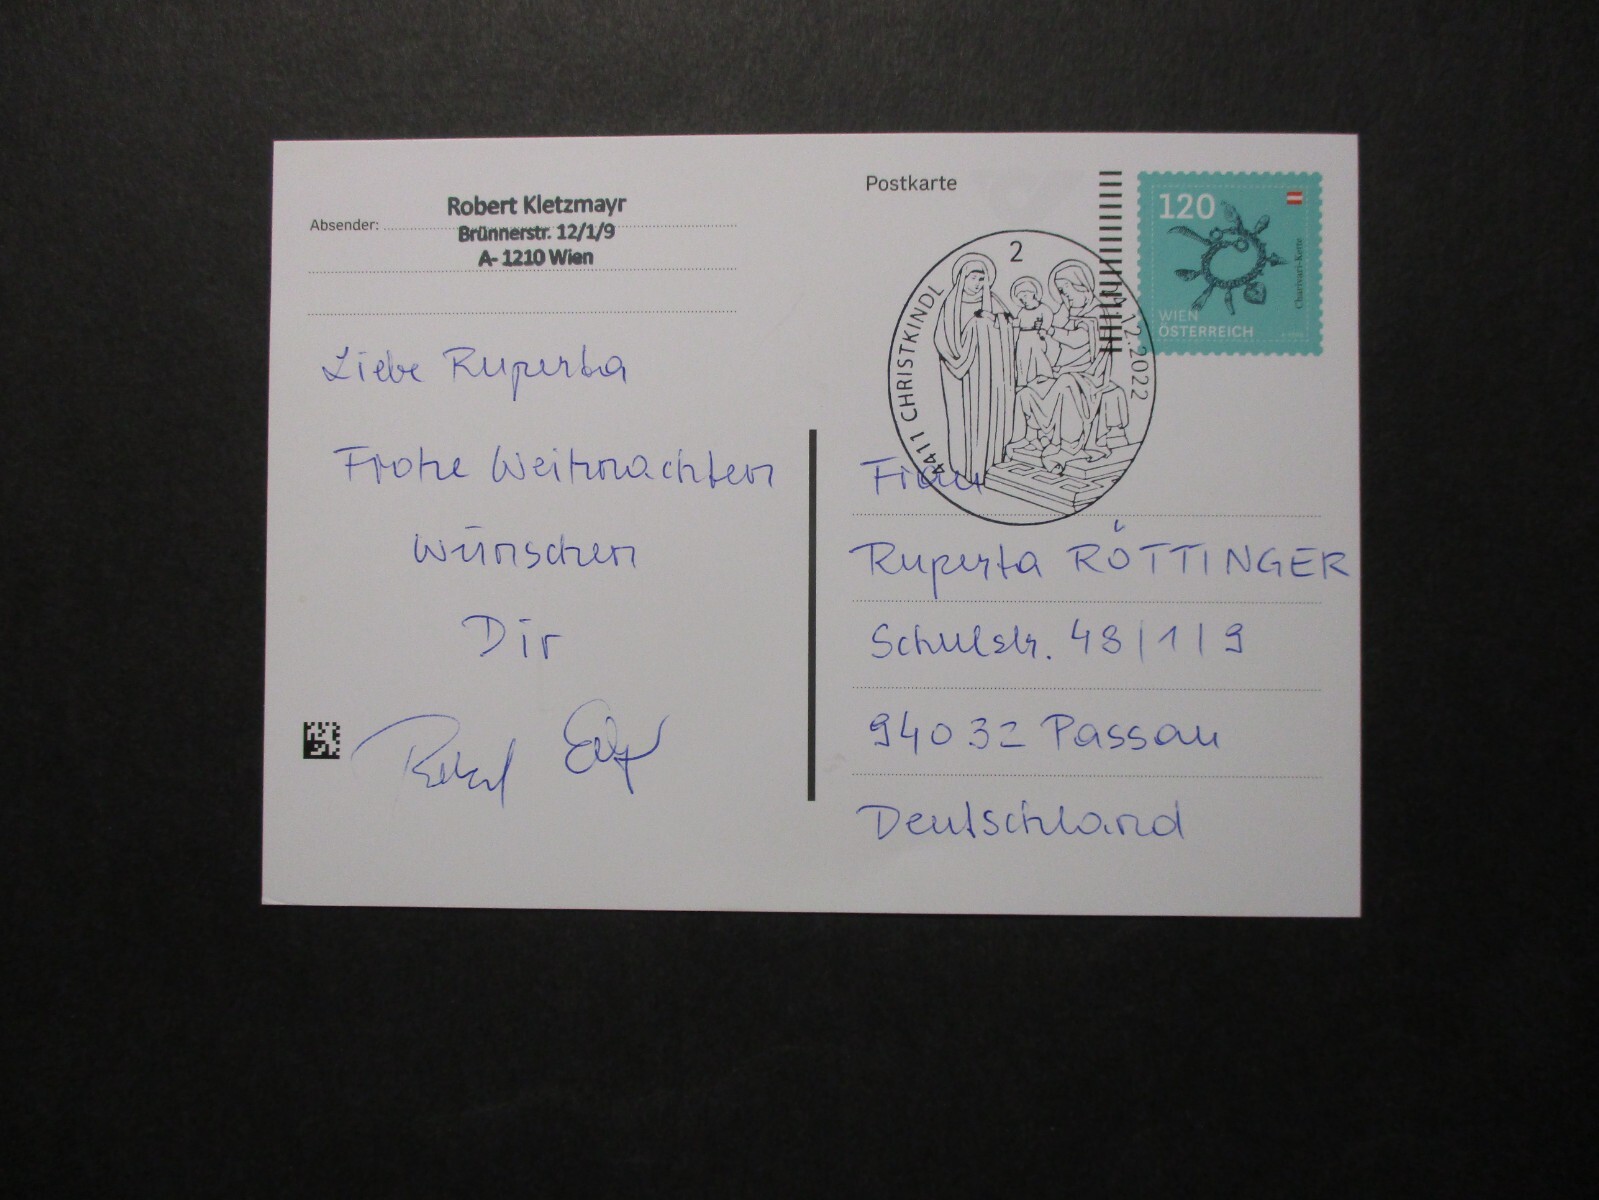 Absender:
Robert Kletzmayr
Brünnerstr. 12/1/9
A- 1210 Wien
Liebe Ruperta
Frohe Weihnachten
wünschen
Dir
Robert
Postkarte
120
Charivari-Kette
WIEN
ÖSTERREICH
2
4411 CHRISTKINDL
12.2022
Frau
Ruperta RÖTTINGER
Schulstr. 48/1/9
94032 Passau
Deutschland